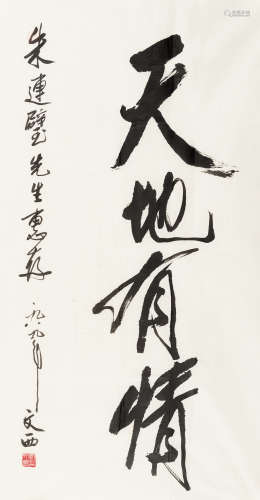 天地有情
朱連璧先生惠存
一九八九年
文西